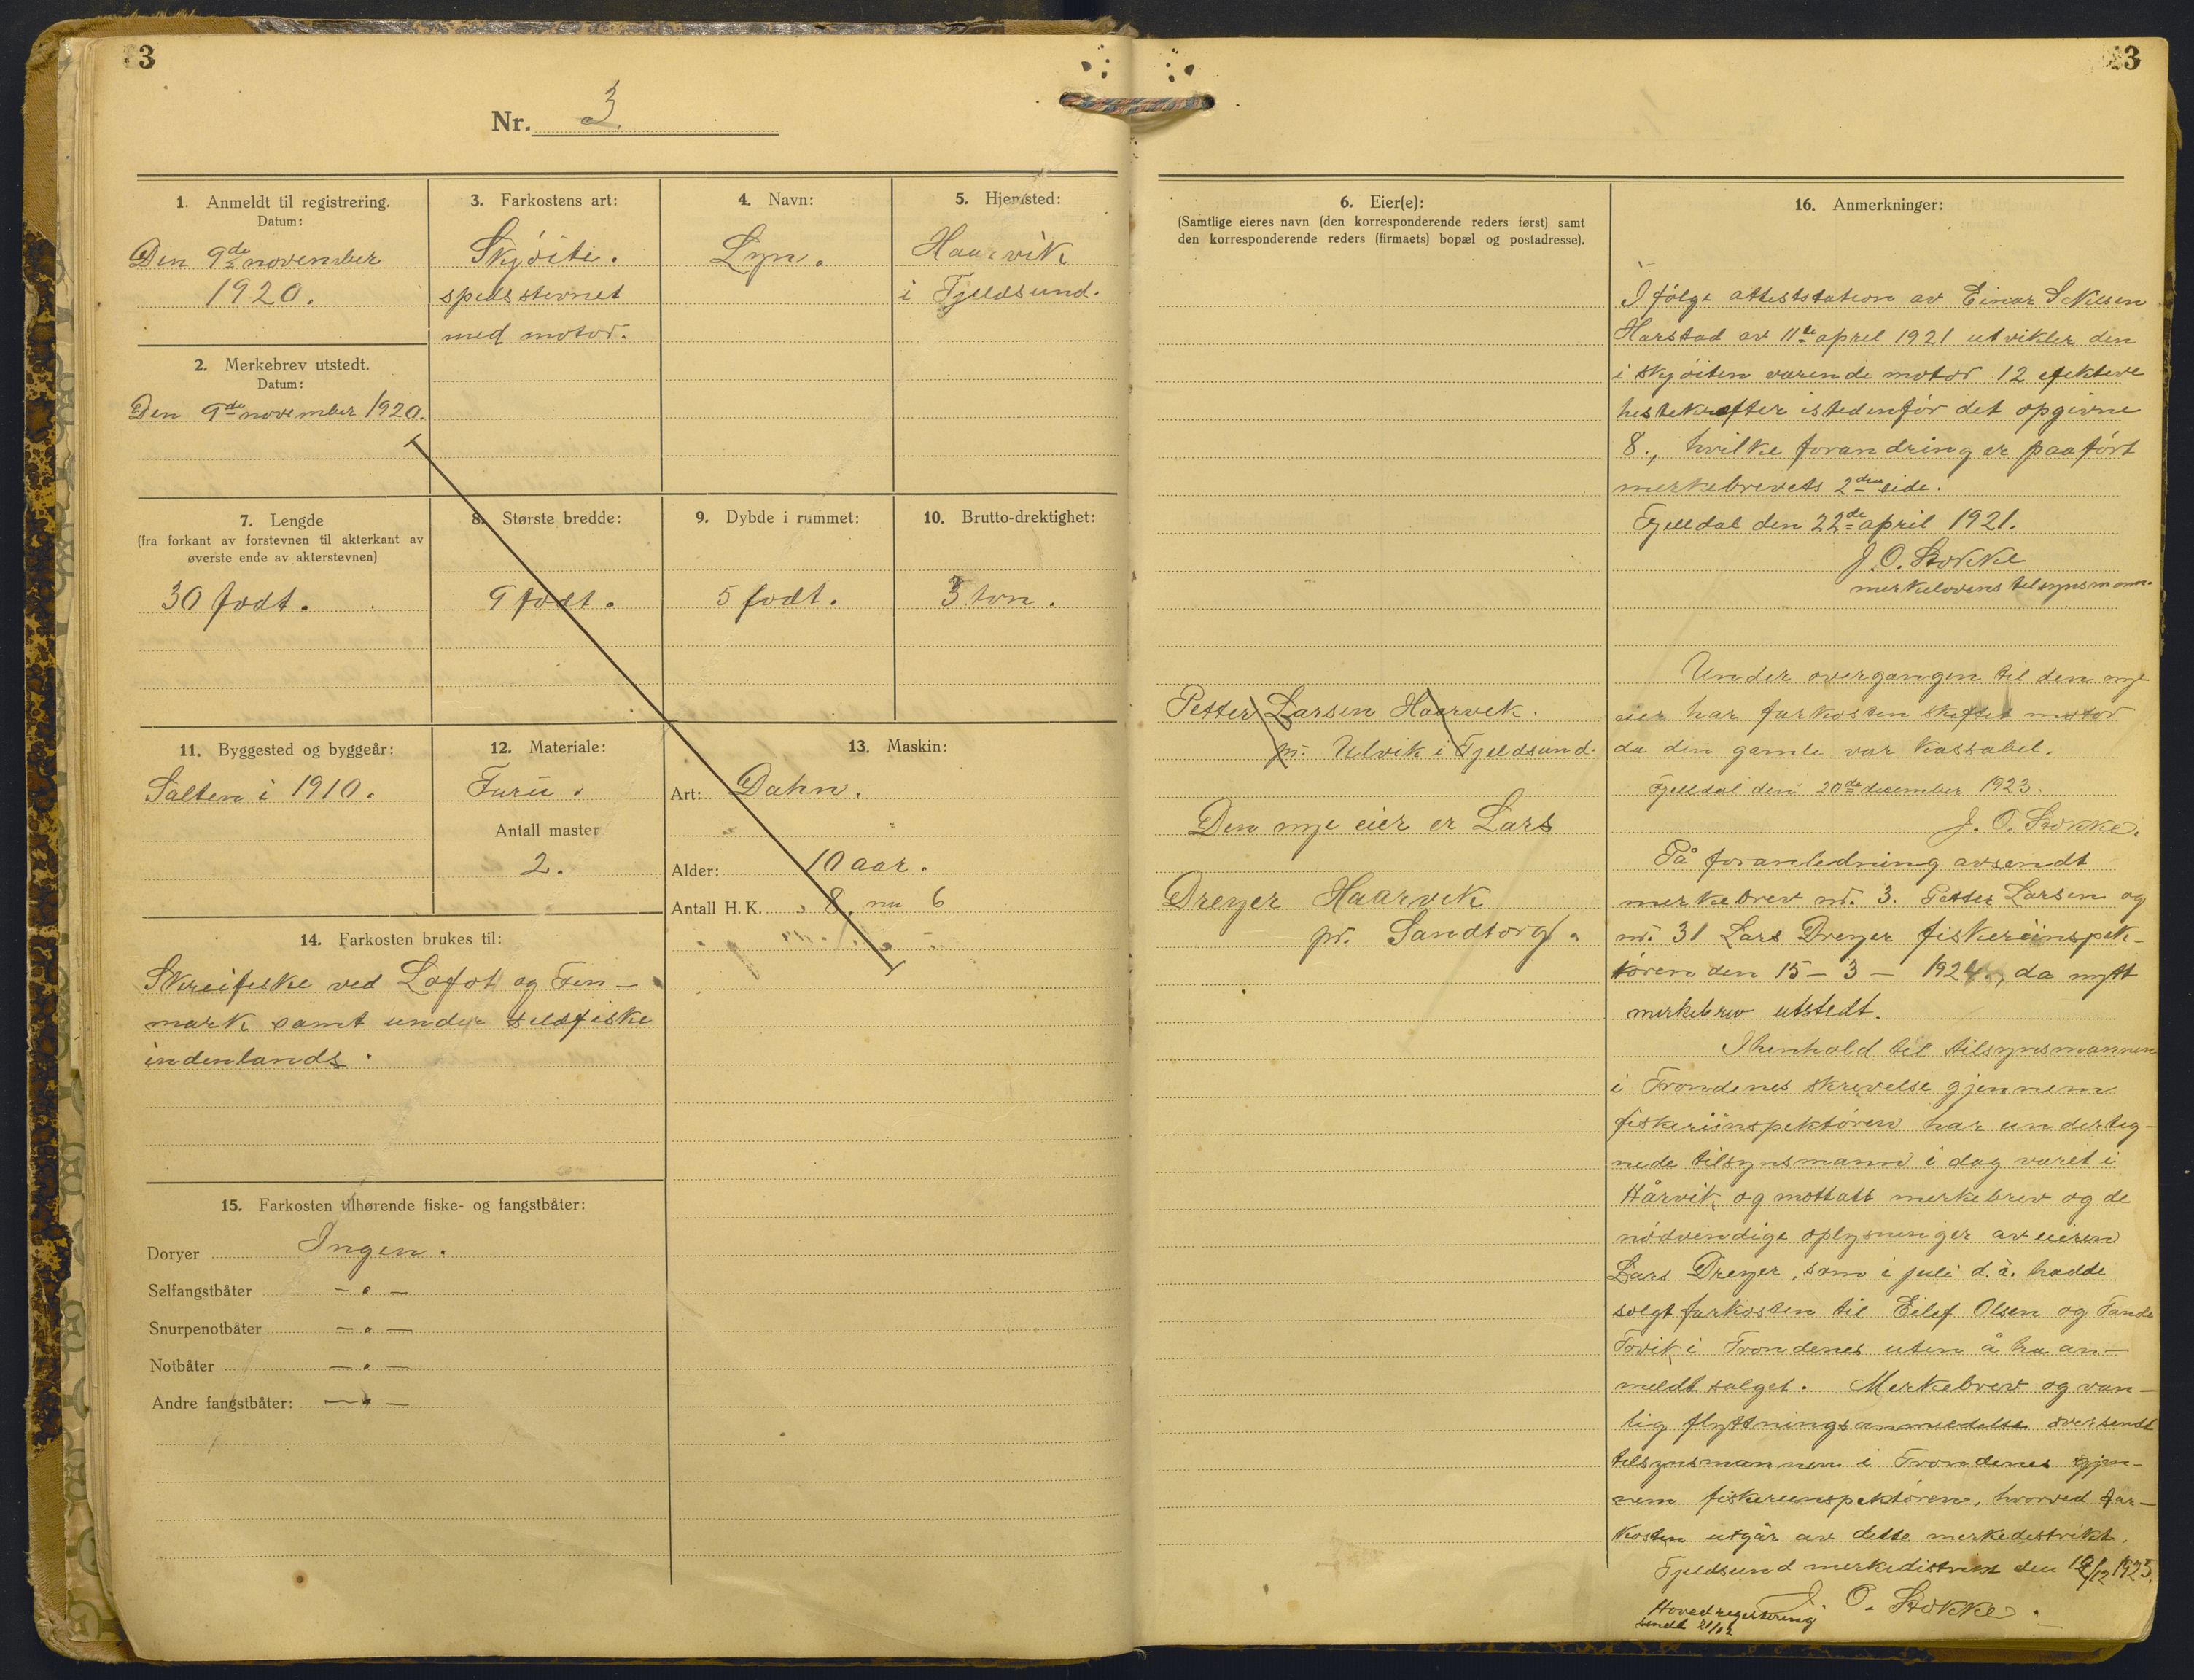 3
Nr. 3
1. Anmeldt til registrering.
Datum:
Den 9de november
1920.
2. Merkebrev utstedt.
Datum:
Den 9de november 1920.
3. Farkostens art:
Skjöite.
spidsstevnet
med motor.
4. Navn:
Lyn.
5. Hjemsted:
Haarvik
i Fjeldsund.
7. Lengde
(fra forkant av forstevnen til akterkant av
øverste ende av akterstevnen)
30 fodt.
8. Største bredde:
9 fodt.
9. Dybde i rummet:
5 fodt.
10. Brutto-drektighet:
3 ton.
11. Byggested og byggeår:
Salten i 1910.
12. Materiale:
Furu.
Antall master
2.
13. Maskin:
Art: Dahn.
Alder: 10 aar.
Antall H. K. 8, nu 6
14. Farkosten brukes til:
Skreifiske ved Lofot og Fin-
mark samt under sildfiske
indenlands.
15. Farkosten tilhørende fiske- og fangstbåter:
Doryer Ingen.
Selfangstbåter -"-
Snurpenotbåter -"-
Notbåter -"-
Andre fangstbåter: -"-
3
6. Eier(e):
(Samtlige eieres navn (den korresponderende reders først) samt
den korresponderende reders (firmaets) bopæl og postadresse).
Petter Larsen Haarvik.
pr. Ulvik i Fjeldsund.
Den nye eier er Lars
Dreyer Haarvik
pr. Sandtorg.
16. Anmerkninger:
I fölge atteststation av Einar S Nilsen
Harstad av 11te april 1921 utvikler den
i skjöiten varende motor 12 efektive
hestekrefter istedenfor det opgivne
8., hvilke forandring er paafört
merkebrevets 2den side.
Fjelldal den 22de april 1921.
J. O. Stokke
merkelovens tilsynsmann.
Under overgangen til den nye
eier har farkosten skiftet motor
da den gamle var kassabel.
Fjelldal den 20de desember 1923.
J. O. Stokke.
På foranledning avsendt
merkebrev nr. 3. Petter Larsen og
nr. 31 Lars Dreyer fiskeriinspek-
tören den 15 - 3 - 1924, da nytt
merkebrev utstedt.
I henhold til tilsynsmannen
i Trondenes skrivelse gjennem
fiskeriinspektören har underteg-
nede tilsynsmann i dag varet i
Hårvik og mottatt merkebrev og de
nödvendige oplysninger av eieren
Lars Dreyer, som i juli d. å. hadde
solgt farkosten til Eilef Olsen og Tande
Tovik i Trondenes uten å ha an-
meldt salget. Merkebrev og van-
lig flyttningsanmeldelse oversendt
tilsynsmannen i Trondenes gjen-
nem fiskeriinspektören, hvorved far-
kosten utgår av dette merkedistrikt.
Fjeldsund merkedistrikt den /12 1925.
J. O. Stokke.
Hovedregistrering
sendt 21/12